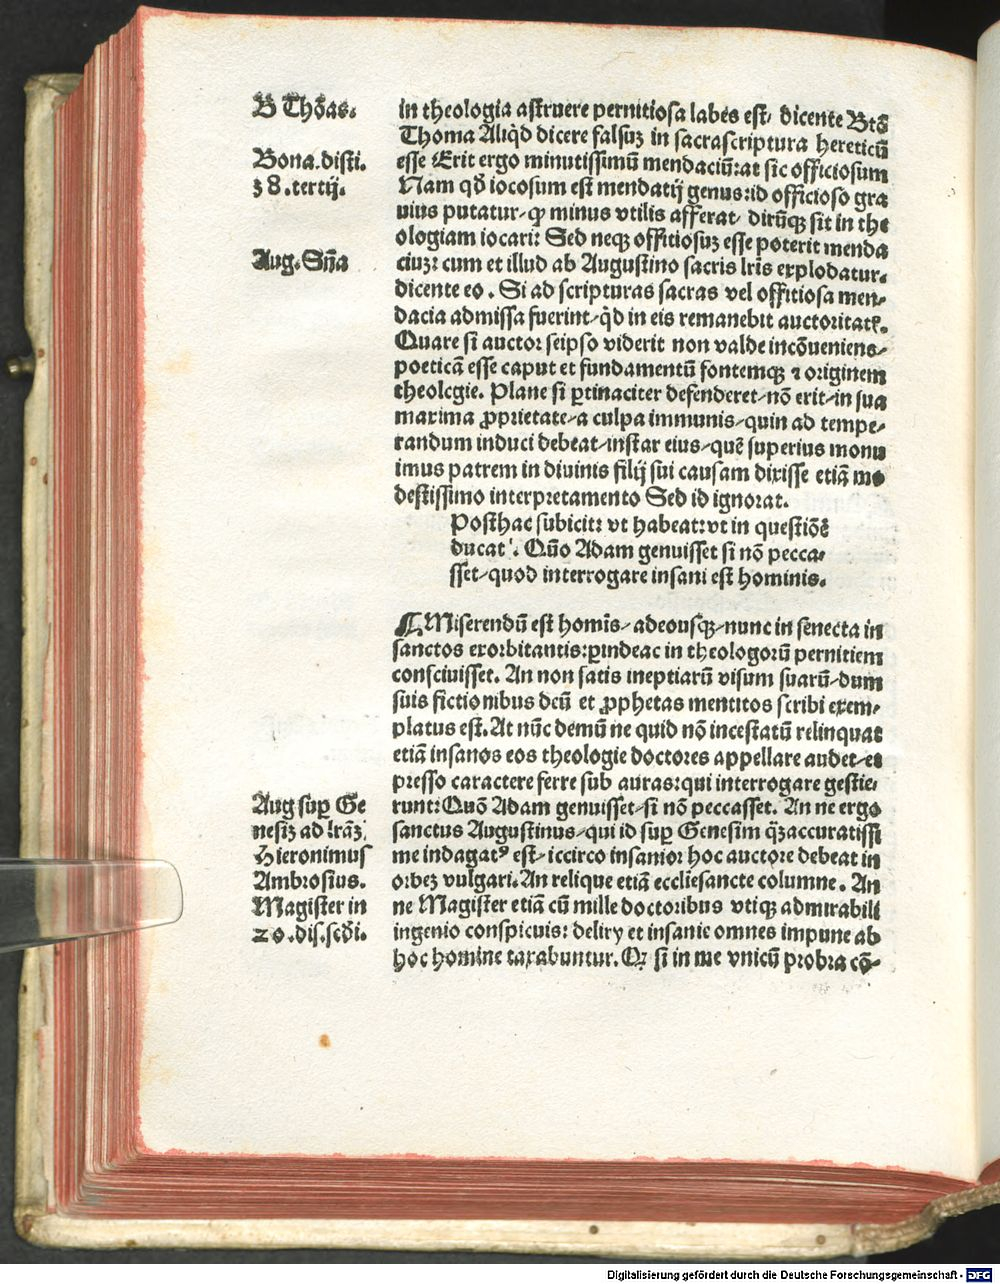 B Thōas.
Bona.disti.
38.tertij.
Aug.Sn̄a
in theologia astruere pernitiosa labes est, dicente Btō
Thoma Aliq̄d dicere falsuz in sacrascriptura hereticū
esse Erit ergo minutissimū mendaciū:at sic officiosum
Nam qđ iocosum est mendatij genus:id officioso gra
uius putatur, qꝫ minus vtilis afferat, dirūqꝫ sit in the
ologiam iocari: Sed neqꝫ offitiosuz esse poterit menda
ciuz: cum et illud ab Augustino sacris lr̄is explodatur,
dicente eo. Si ad scripturas sacras vel offitiosa men-
dacia admissa fuerint, q̄d in eis remanebit auctoritatꝭ.
Quare si auctor seipso viderit non valde incōueniens,
poeticā esse caput et fundamentū fontemqꝫ ⁊ originem
theologie. Plane si ꝑtinaciter defenderet, nō erit, in sua
maxima ꝓprietate, a culpa immunis, quin ad tempe-
randum induci debeat, instar eius, quē superius monu
imus patrem in diuinis filij sui causam dixisse etiā mo
destissimo interpretamento Sed id ignorat.
Posthac subicit: vt habeat:vt in questiōē
ducat'. Quō Adam genuisset si nō pecca-
sset, quod interrogare insani est hominis.
¶ Miserendū est homīs, adeousqꝫ, nunc in senecta in
sanctos exorbitantis:ꝑindeac in theologorū pernitiem
consciuisset. An non satis ineptiarū visum suarū, dum
suis fictionibus deū et ꝓphetas mentitos scribi exem-
platus est. At nūc demū ne quid nō incestatū relinquat
etiā insanos eos theologie doctores appellare audet, ex
presso caractere ferre sub auras:qui interrogare gestie
runt: Quō Adam genuisset, si nō peccasset. An ne ergo
sanctus Augustinus, qui id suꝑ Genesim q̄zaccuratissi
me indagatꝰ est, iccirco insanior hoc auctore debeat in
orbez vulgari. An relique etiā ecclie sancte columne. An
ne Magister etiā cū mille doctoribus vtiqꝫ admirabili
ingenio conspicuis: deliry et insanie omnes impune ab
hoc homine taxabuntur. Qꝫ si in me vnicū probra cō-
Aug suꝑ Ge
nesiz ad lr̄az
Hieronimus
Ambrosius.
Magister in
20.dis.scđi.
Digitalisierung gefördert durch die Deutsche Forschungsgemeinschaft - DFG